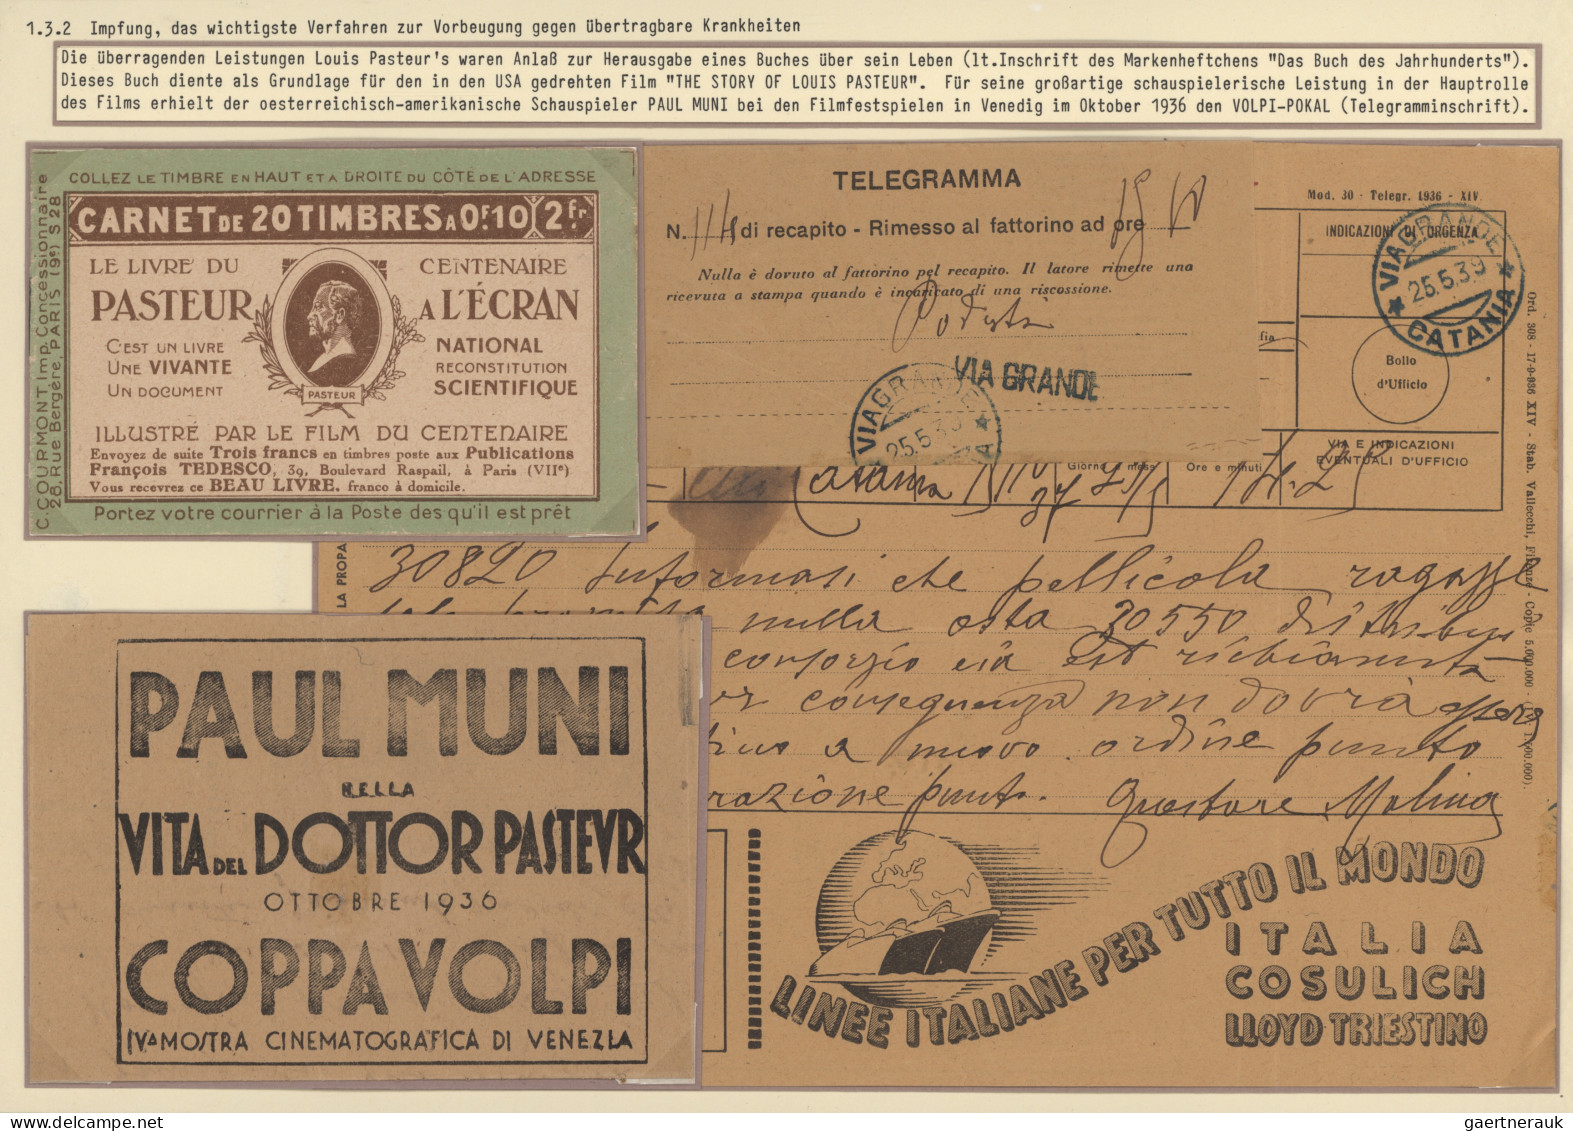 1.3.2 Impfung, das wichtigste Verfahren zur Vorbeugung gegen übertragbare Krankheiten
Die überragenden Leistungen Louis Pasteur's waren Anlaß zur Herausgabe eines Buches über sein Leben (lt.Inschrift des Markenheftchens "Das Buch des Jahrhunderts").
Dieses Buch diente als Grundlage für den in den USA gedrehten Film "THE STORY OF LOUIS PASTEUR". Für seine großartige schauspielerische Leistung in der Hauptrolle
des Films erhielt der oesterreichisch-amerikanische Schauspieler PAUL MUNI bei den Filmfestspielen in Venedig im Oktober 1936 den VOLPI-POKAL (Telegramminschrift).
C. COURMONT Imp. Concessionnaire
28, Rue Bergère, PARIS (9e) S 28
COLLEZ LE TIMBRE EN HAUT ET A DROITE DU CÔTÉ DE L'ADRESSE
CARNET DE 20 TIMBRES A 0F.10 2 fr.
LE LIVRE DU CENTENAIRE
PASTEUR A L'ÉCRAN
C'EST UN LIVRE NATIONAL
UNE VIVANTE RECONSTITUTION
UN DOCUMENT SCIENTIFIQUE
PASTEUR
ILLUSTRÉ PAR LE FILM DU CENTENAIRE
Envoyez de suite Trois francs en timbres poste aux Publications
François TEDESCO, 39, Boulevard Raspail, à Paris (VIIe)
Vous recevrez ce BEAU LIVRE, franco à domicile.
Portez votre courrier à la Poste dès qu'il est prêt
TELEGRAMMA
N. 114 di recapito - Rimesso al fattorino ad ore
Nulla è dovuto al fattorino pel recapito. Il latore rimette una
ricevuta a stampa quando è incaricato di una riscossione.
Podestà
VIAGRANDE
VIAGRANDE
25.5.39
Mod. 30 - Telegr. 1936 - XIV
INDICAZIONI DI URGENZA
VIAGRANDE
25.5.39
CATANIA
Bollo
d'Ufficio
VIA E INDICAZIONI
EVENTUALI D'UFFICIO
Giorno e mese Ore e minuti
Catania
Ord. 308 - 17-9-936 XIV - Stab. Vallecchi, Firenze - Copie 5.000.000
LA PROPA
30820 Informasi che pellicola ragazze
nulla osta 30550
consorzio est richiamata
conseguenza non dovrà essere
a nuovo ordine punto
razione punto. Questore Molina
PAUL MUNI
NELLA
VITA DEL DOTTOR PASTEVR
OTTOBRE 1936
COPPA VOLPI
IVA MOSTRA CINEMATOGRAFICA DI VENEZIA
LINEE ITALIANE PER TUTTO IL MONDO
ITALIA
COSULICH
LLOYD TRIESTINO
gaertnerauk @ delcampe.net